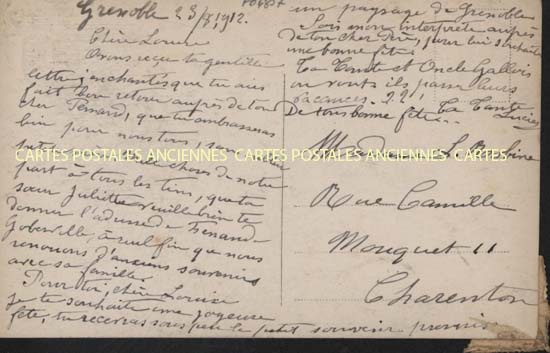 Grenoble 23/8 1912.
Chère Louise
Avons reçu ta gentille
lettre, enchantés que tu aies
fait bon retour auprès de ton
cher Fernand, que tu embrasseras
bien pour nous tous,
chose de notre
part à tous les tiens, que ta
sœur Juliette veuille bien te
donner l'adresse de Fernand
à seul fin que nous
renouions d'anciens souvenirs
avec sa famille.
Pour toi, chère Louise
je te souhaite une joyeuse
fête, tu recevras sous peu le petit souvenir promis
un paysage de Grenoble
Sois mon interprète auprès
de ton cher père, pour lui souhaiter
une bonne fête.
Ta Tante et Oncle Gallois
où vont ils passer leurs
vacances. ??
De tous bonne fête. Ta Tante
Lucie
CARTES POSTALES ANCIENNES CARTES POSTALES ANCIENNES CARTES POSTALES ANCIENNES
Rue Camille
Mouquet 11
Charenton